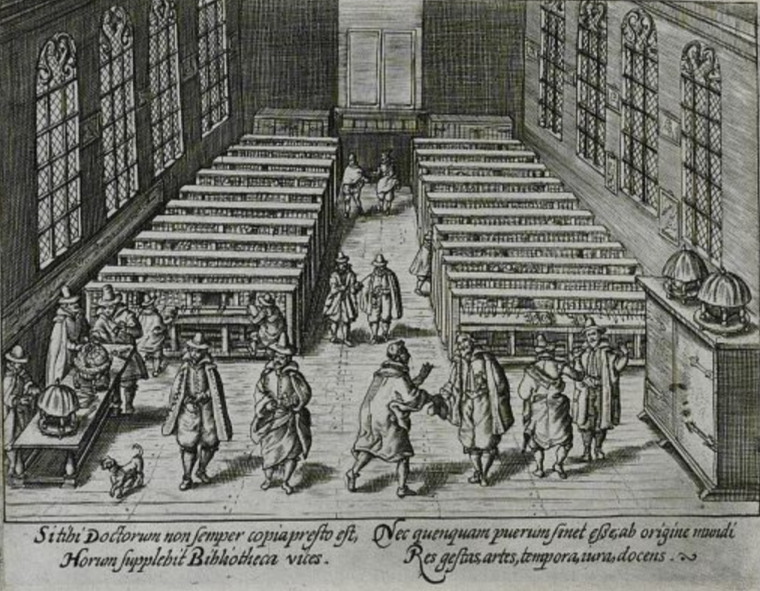 Si tibi Doctorum non semper copia presto est,
Horum supplebit Bibliotheca vices.
Nec quenquam puerum sinet esse; ab origine mundi
Res gestas, artes, tempora, iura, docens.